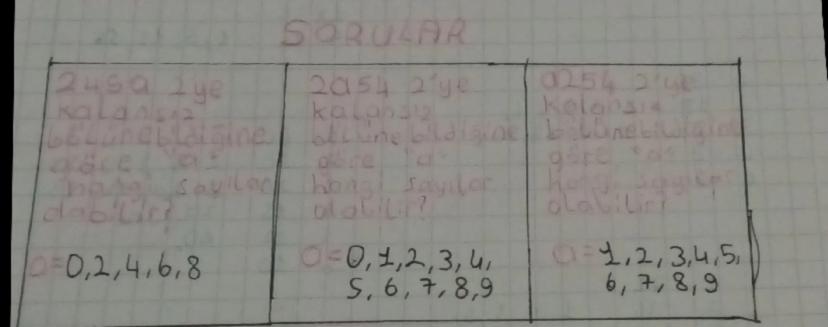 SORULAR
245a 2ye
kalansız
bölünebildiğine
göre "a"
hangi sayılar
olabilir?
a=0,2,4,6,8
2a54 2'ye
kalansız
bölünebildiğine
göre "a"
hangi sayılar
olabilir?
a=0,1,2,3,4,
5,6,7,8,9
a254 2'ye
kalansız
bölünebildiğine
göre "a"
hangi sayılar
olabilir?
a=1,2,3,4,5,
6,7,8,9